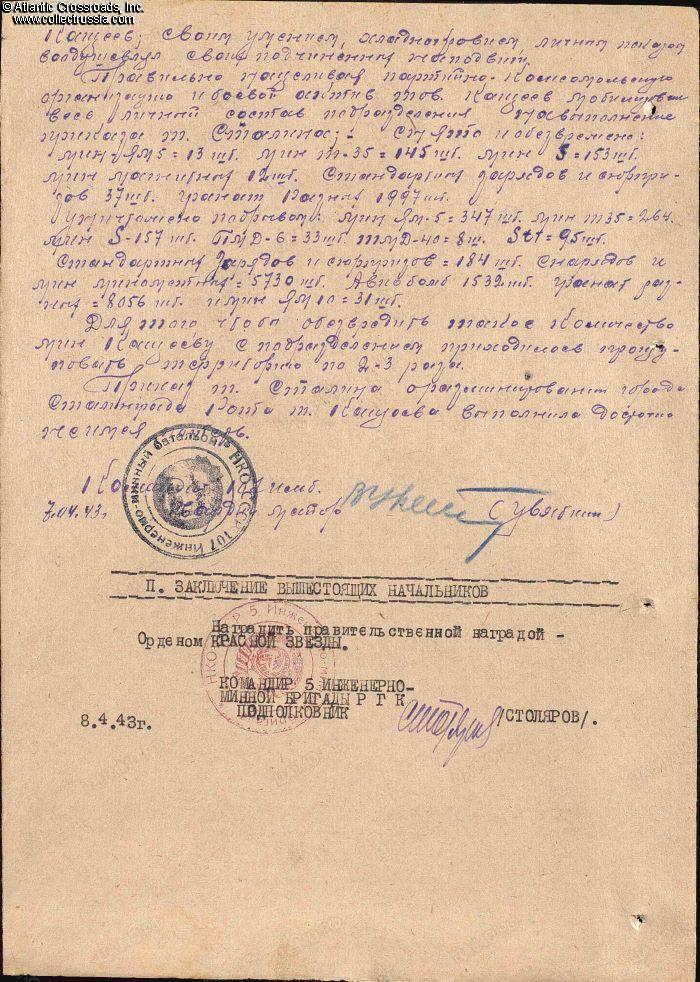 © Atlantic Crossroads, Inc.
www.collectrussia.com
Кащеев; своим умением, хладнокровием, личным показом
воодушевлял своих подчиненных на подвиги.
Правильно нацеливая партийно-комсомольскую
организацию и боевой актив тов. Кащеев мобилизовал
весь личный состав подразделения на выполнение
приказа т. Сталина; - снято и обезврежено:
мин ЯМ5 = 13 шт. мин Т-35 = 145 шт. мин S = 153 шт.
мин магнитных 12 шт. Стандартных зарядов и сюрпри-
зов 37 шт. гранат разных 1997 шт.
Уничтожено подрывом: мин ЯМ-5 = 347 шт. мин Т35 = 264.
мин S-157 шт. ПМД-6 = 33 шт. ТМД-40 = 8 ш. = 95 шт.
Стандартных зарядов и сюрпризов = 184 шт. Снарядов и
мин минометных = 5730 шт. Авиабомб 1532 шт. гранат раз-
ных = 8056 шт. и мин ЯМ 10 = 31 шт.
Для того чтобы обезвредить такое количество
мин Кащееву с подразделением приходилось прощу-
пывать территорию по 2-3 раза.
Приказ т. Сталина о разминировании города
Сталинграда рота т. Кащеева выполнила досрочно
не имея
Командир 107 имб.
7.04.43г. гвардии майор
НКО СССР 107 Инженерно-минный батальон
П. ЗАКЛЮЧЕНИЕ ВЫШЕСТОЯЩИХ НАЧАЛЬНИКОВ
Наградить правительственной наградой -
Орденом КРАСНОЙ ЗВЕЗДЫ.
КОМАНДИР 5 ИНЖЕНЕРНО-
МИННОЙ БРИГАДЫ Р Г К
ПОДПОЛКОВНИК /СТОЛЯРОВ/.
8.4.43г.